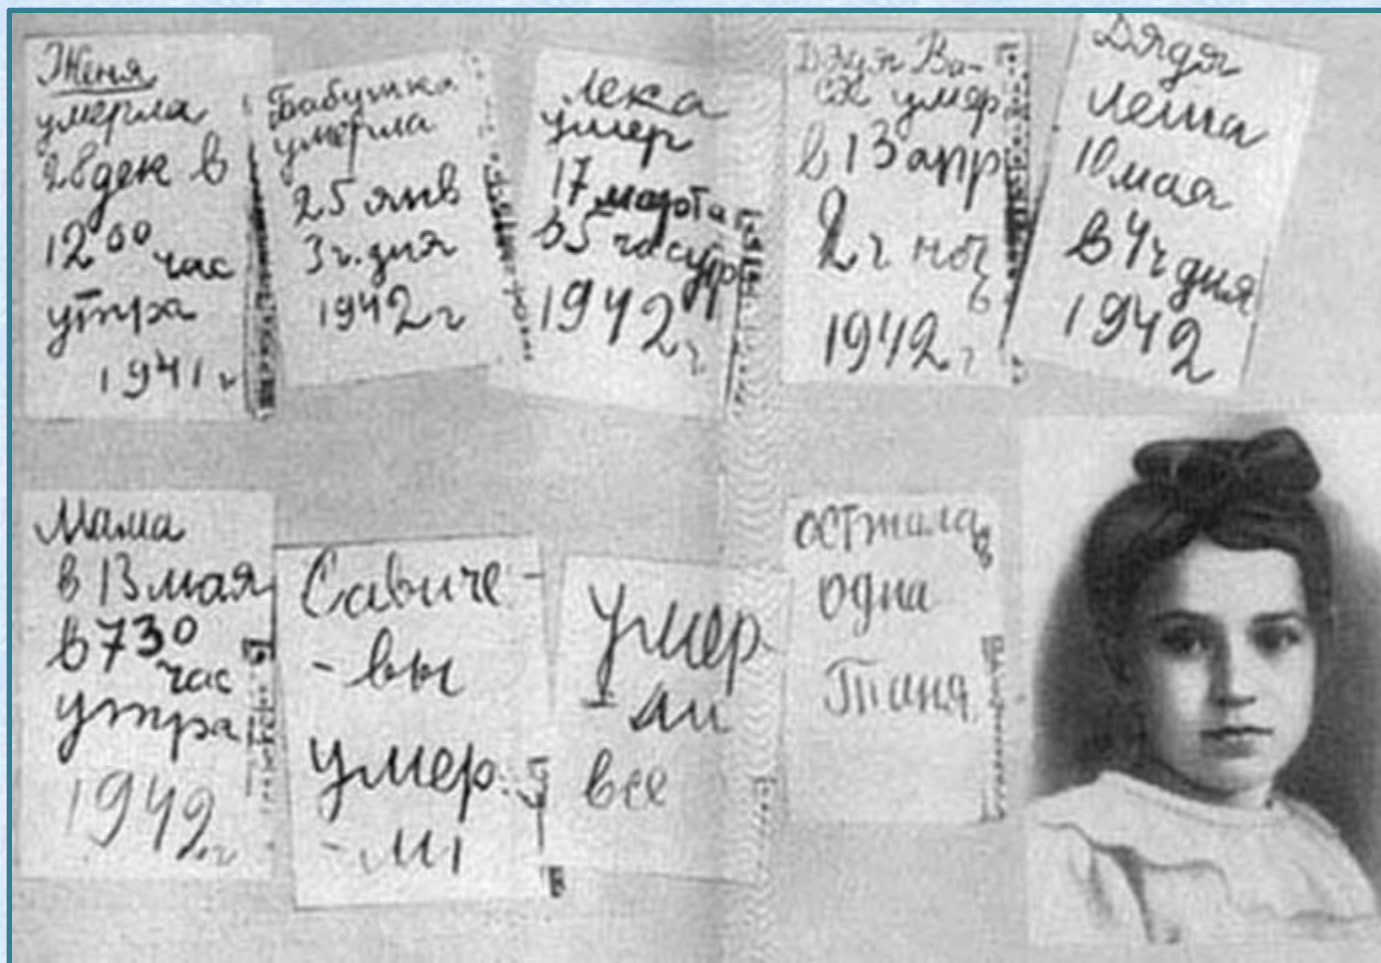 Женя
умерла
28 дек в
12 00 час
утра
1941 г
Бабушка
умерла
25 янв
3 ч. дня
1942 г
Лека
умер
17 марта
в 5 час утр
1942 г.
Дядя Ва-
ся умер
в 13 апр
2 ч ноч
ь
1942 г
Дядя
Леша
10 мая
в 4 ч дня
1942
Мама
в 13 мая
в 730
час
утра
1942 г
Савиче-
-вы
умер.
-ли
Умер-
-ли
все
осталась
одна
Таня